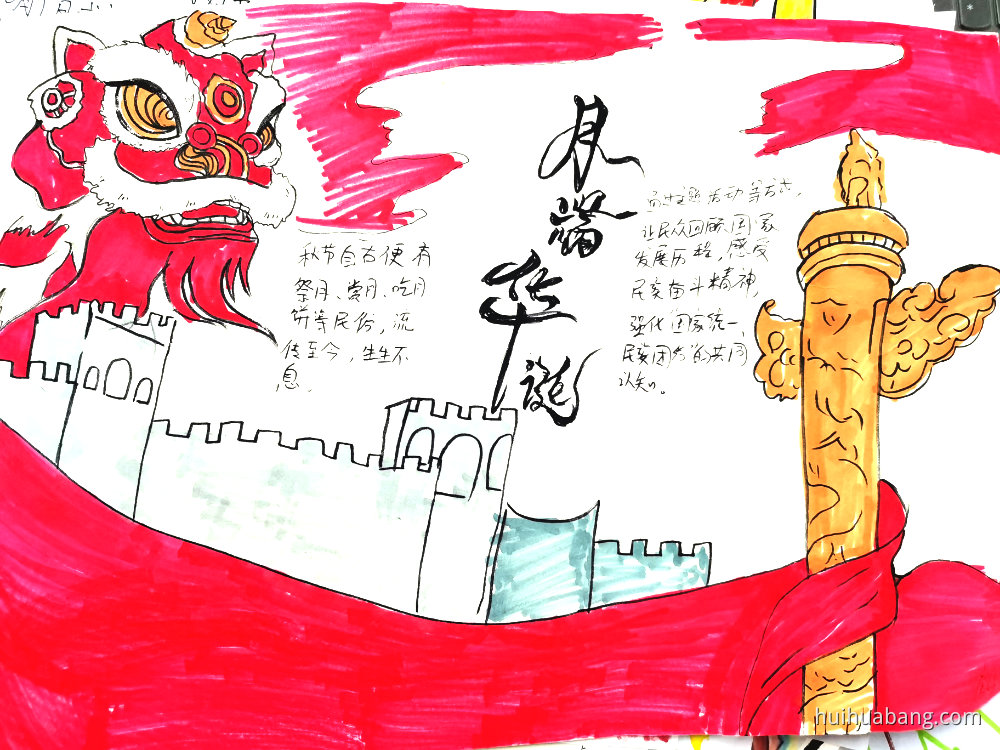 月满华诞
秋节自古便有
祭月、赏月、吃月
饼等民俗，流
传至今，生生不
息。
通过主题活动等方式，
让民众回顾国家
发展历程，感受
民族奋斗精神，
强化国家统一、
民族团结的共同
认知。
huihuabang.com